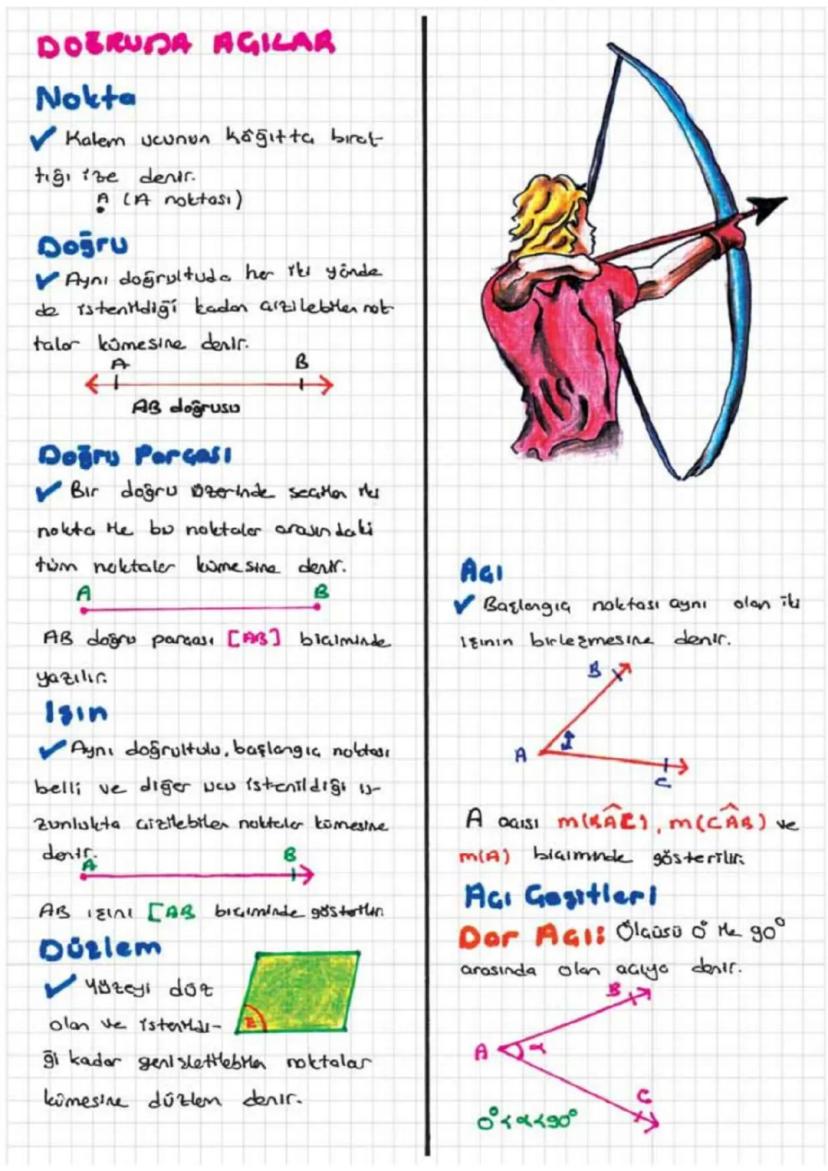 DOĞRUDA AÇILAR
Nokta
✓ Kalem ucunun kâğıtta bırak
tığı ize denir.
A (A noktası)
Doğru
✓ Aynı doğrultuda her iki yönde
de istenildiği kadar çizilebilen nok
talar kümesine denir.
A B
AB doğrusu
Doğru Parçası
✓ Bir doğru üzerinde seçilen iki
nokta ile bu noktalar arasındaki
tüm noktalar kümesine denir.
A B
AB doğru parçası [AB] biçiminde
yazılır.
Işın
✓ Aynı doğrultulu, başlangıç noktası
belli ve diğer ucu istenildiği u-
zunlukta çizilebilen noktalar kümesine
denir.
A B
AB ışını [AB biçiminde gösterilir.
Düzlem
✓ Yüzeyi düz
olan ve istenildi-
E
ği kadar genişletilebilen noktalar
kümesine düzlem denir.
Açı
✓ Başlangıç noktası aynı olan iki
ışının birleşmesine denir.
B
A
C
A açısı m(BÂC), m(CÂB) ve
m(A) biçiminde gösterilir.
Açı Çeşitleri
Dar Açı: Ölçüsü 0° ile 90°
arasında olan açıya denir.
B
A α
C
0°<α<90°